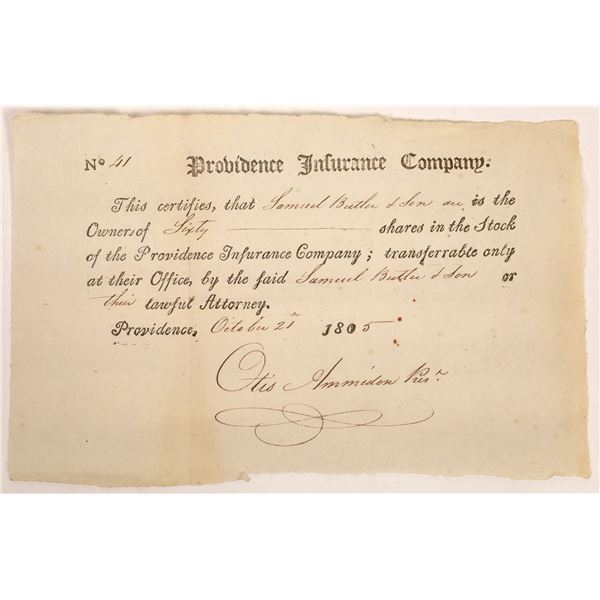 No 41 Providence Insurance Company.
This certifies, that Samuel Butler & Son are is the
Owners of Sixty shares in the Stock
of the Providence Insurance Company; transferrable only
at their Office, by the said Samuel Butler & Son or
their lawful Attorney.
Providence, October 21st 1805
Otis Ammidon Prest.